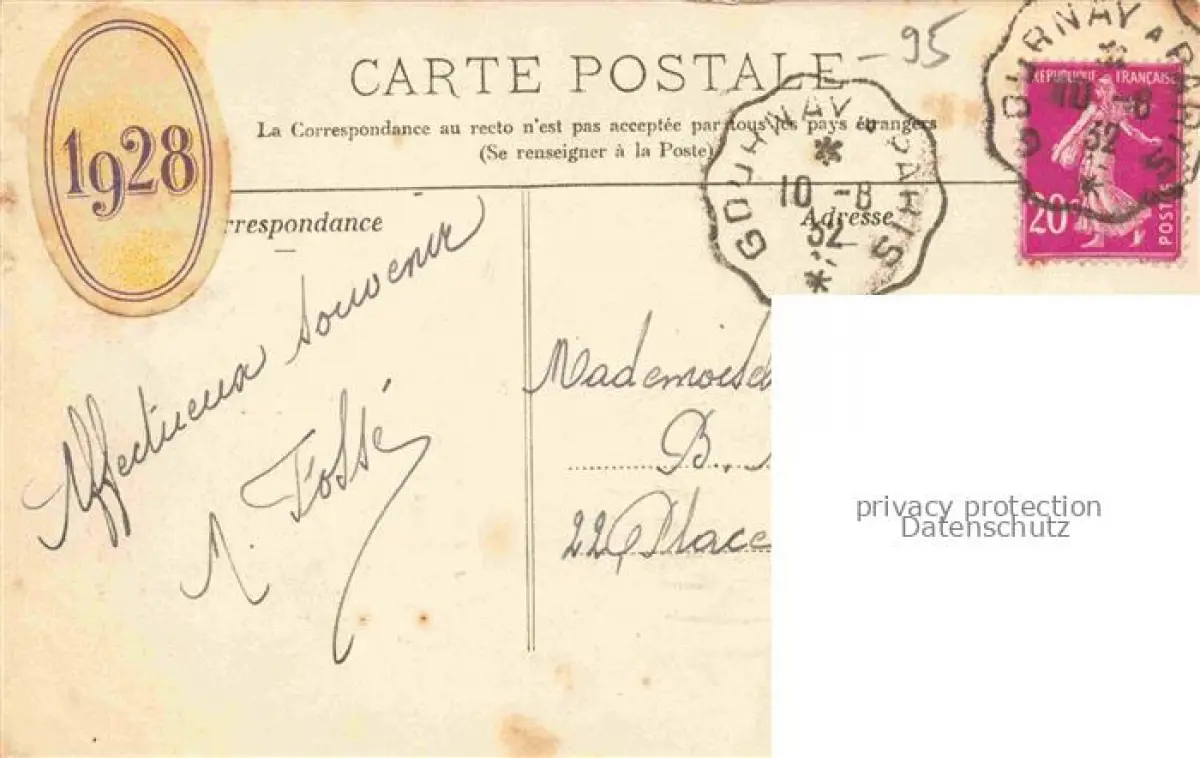 1928
- 95
CARTE POSTALE
La Correspondance au recto n'est pas acceptée par tous les pays étrangers
(Se renseigner à la Poste)
rrespondance
Adresse
GOURNAY A PARIS
10 - 8
32
GOURNAY A PARIS
10 - 8
32
REPUBLIQUE FRANÇAISE
20c
POSTES
Affectueux souvenir
Fossé
Mademoisel
B.
22 Place
privacy protection
Datenschutz